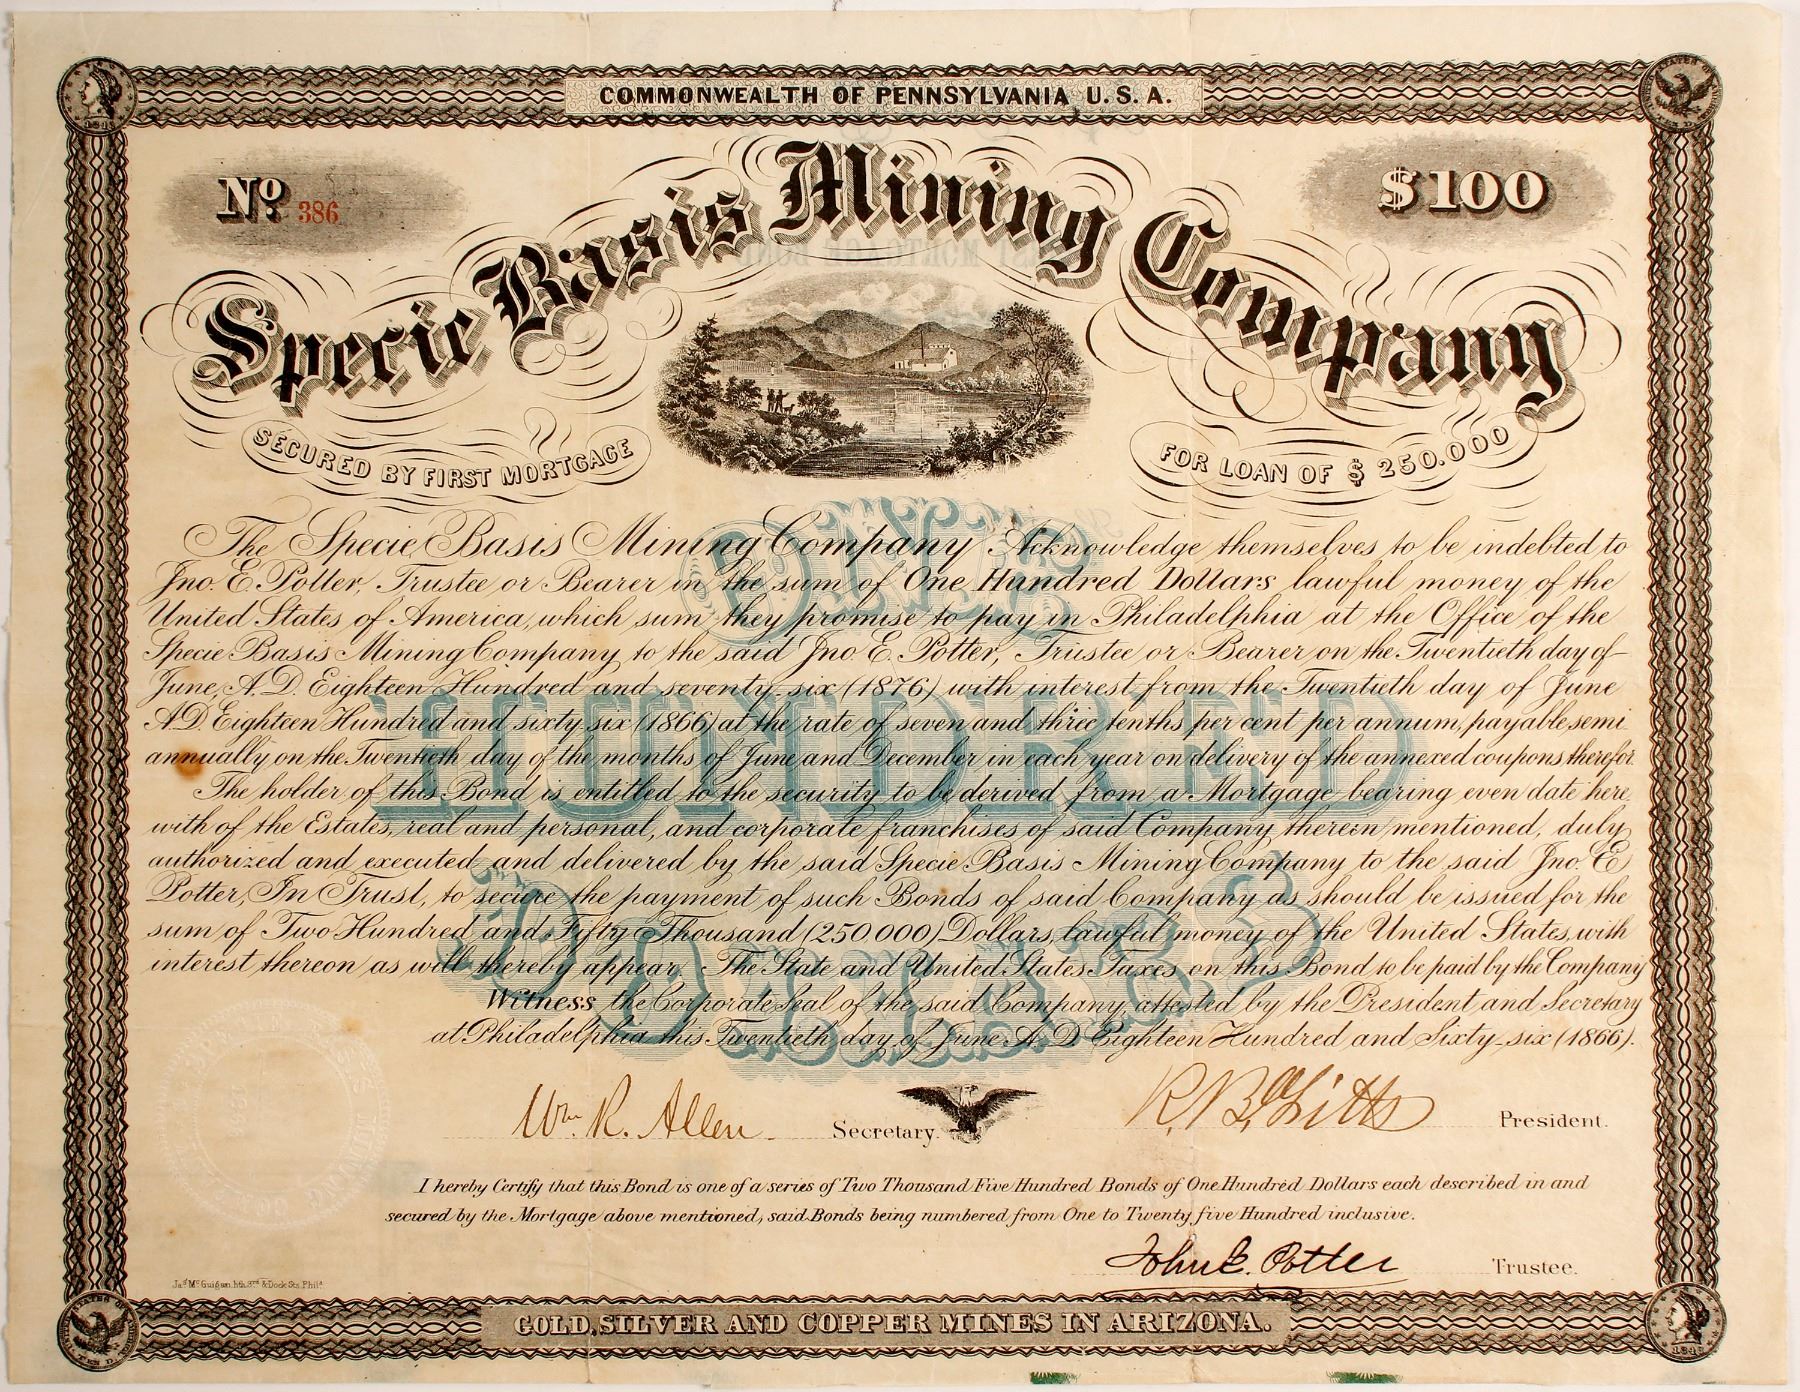 COMMONWEALTH OF PENNSYLVANIA U.S.A.
No. 386
$100
Specie Basis Mining Company
SECURED BY FIRST MORTGAGE
FOR LOAN OF $ 250.000
ONE
HUNDRED
DOLLARS
The Specie Basis Mining Company Acknowledge themselves to be indebted to
Jno. E. Potter, Trustee or Bearer in the sum of One Hundred Dollars lawful money of the
United States of America, which sum they promise to pay in Philadelphia at the Office of the
Specie Basis Mining Company to the said Jno. E. Potter, Trustee or Bearer on the Twentieth day of
June, A.D. Eighteen Hundred and seventy-six (1876) with interest from the Twentieth day of June
A.D. Eighteen Hundred and sixty-six (1866) at the rate of seven and three tenths per cent per annum, payable semi-
annually on the Twentieth day of the months of June and December in each year on delivery of the annexed coupons therefor.
The holder of this Bond is entitled to the security to be derived from a Mortgage bearing even date here-
with of the Estates, real and personal, and corporate franchises of said Company therein mentioned, duly
authorized and executed and delivered by the said Specie Basis Mining Company to the said Jno. E.
Potter, In Trust, to secure the payment of such Bonds of said Company as should be issued for the
sum of Two Hundred and Fifty Thousand (250.000) Dollars, lawful money of the United States, with
interest thereon as will thereby appear. The State and United States Taxes on this Bond to be paid by the Company
Witness the Corporate Seal of the said Company, attested by the President and Secretary
at Philadelphia this Twentieth day of June A.D. Eighteen Hundred and Sixty-six (1866).
Wm. R. Allen
Secretary.
President.
I hereby Certify that this Bond is one of a series of Two Thousand Five Hundred Bonds of One Hundred Dollars each described in and
secured by the Mortgage above mentioned, said Bonds being numbered from One to Twenty five Hundred inclusive.
John E. Potter
Trustee.
Jas. McGuigan, lith. 3rd & Dock Sts. Phila.
GOLD, SILVER AND COPPER MINES IN ARIZONA.